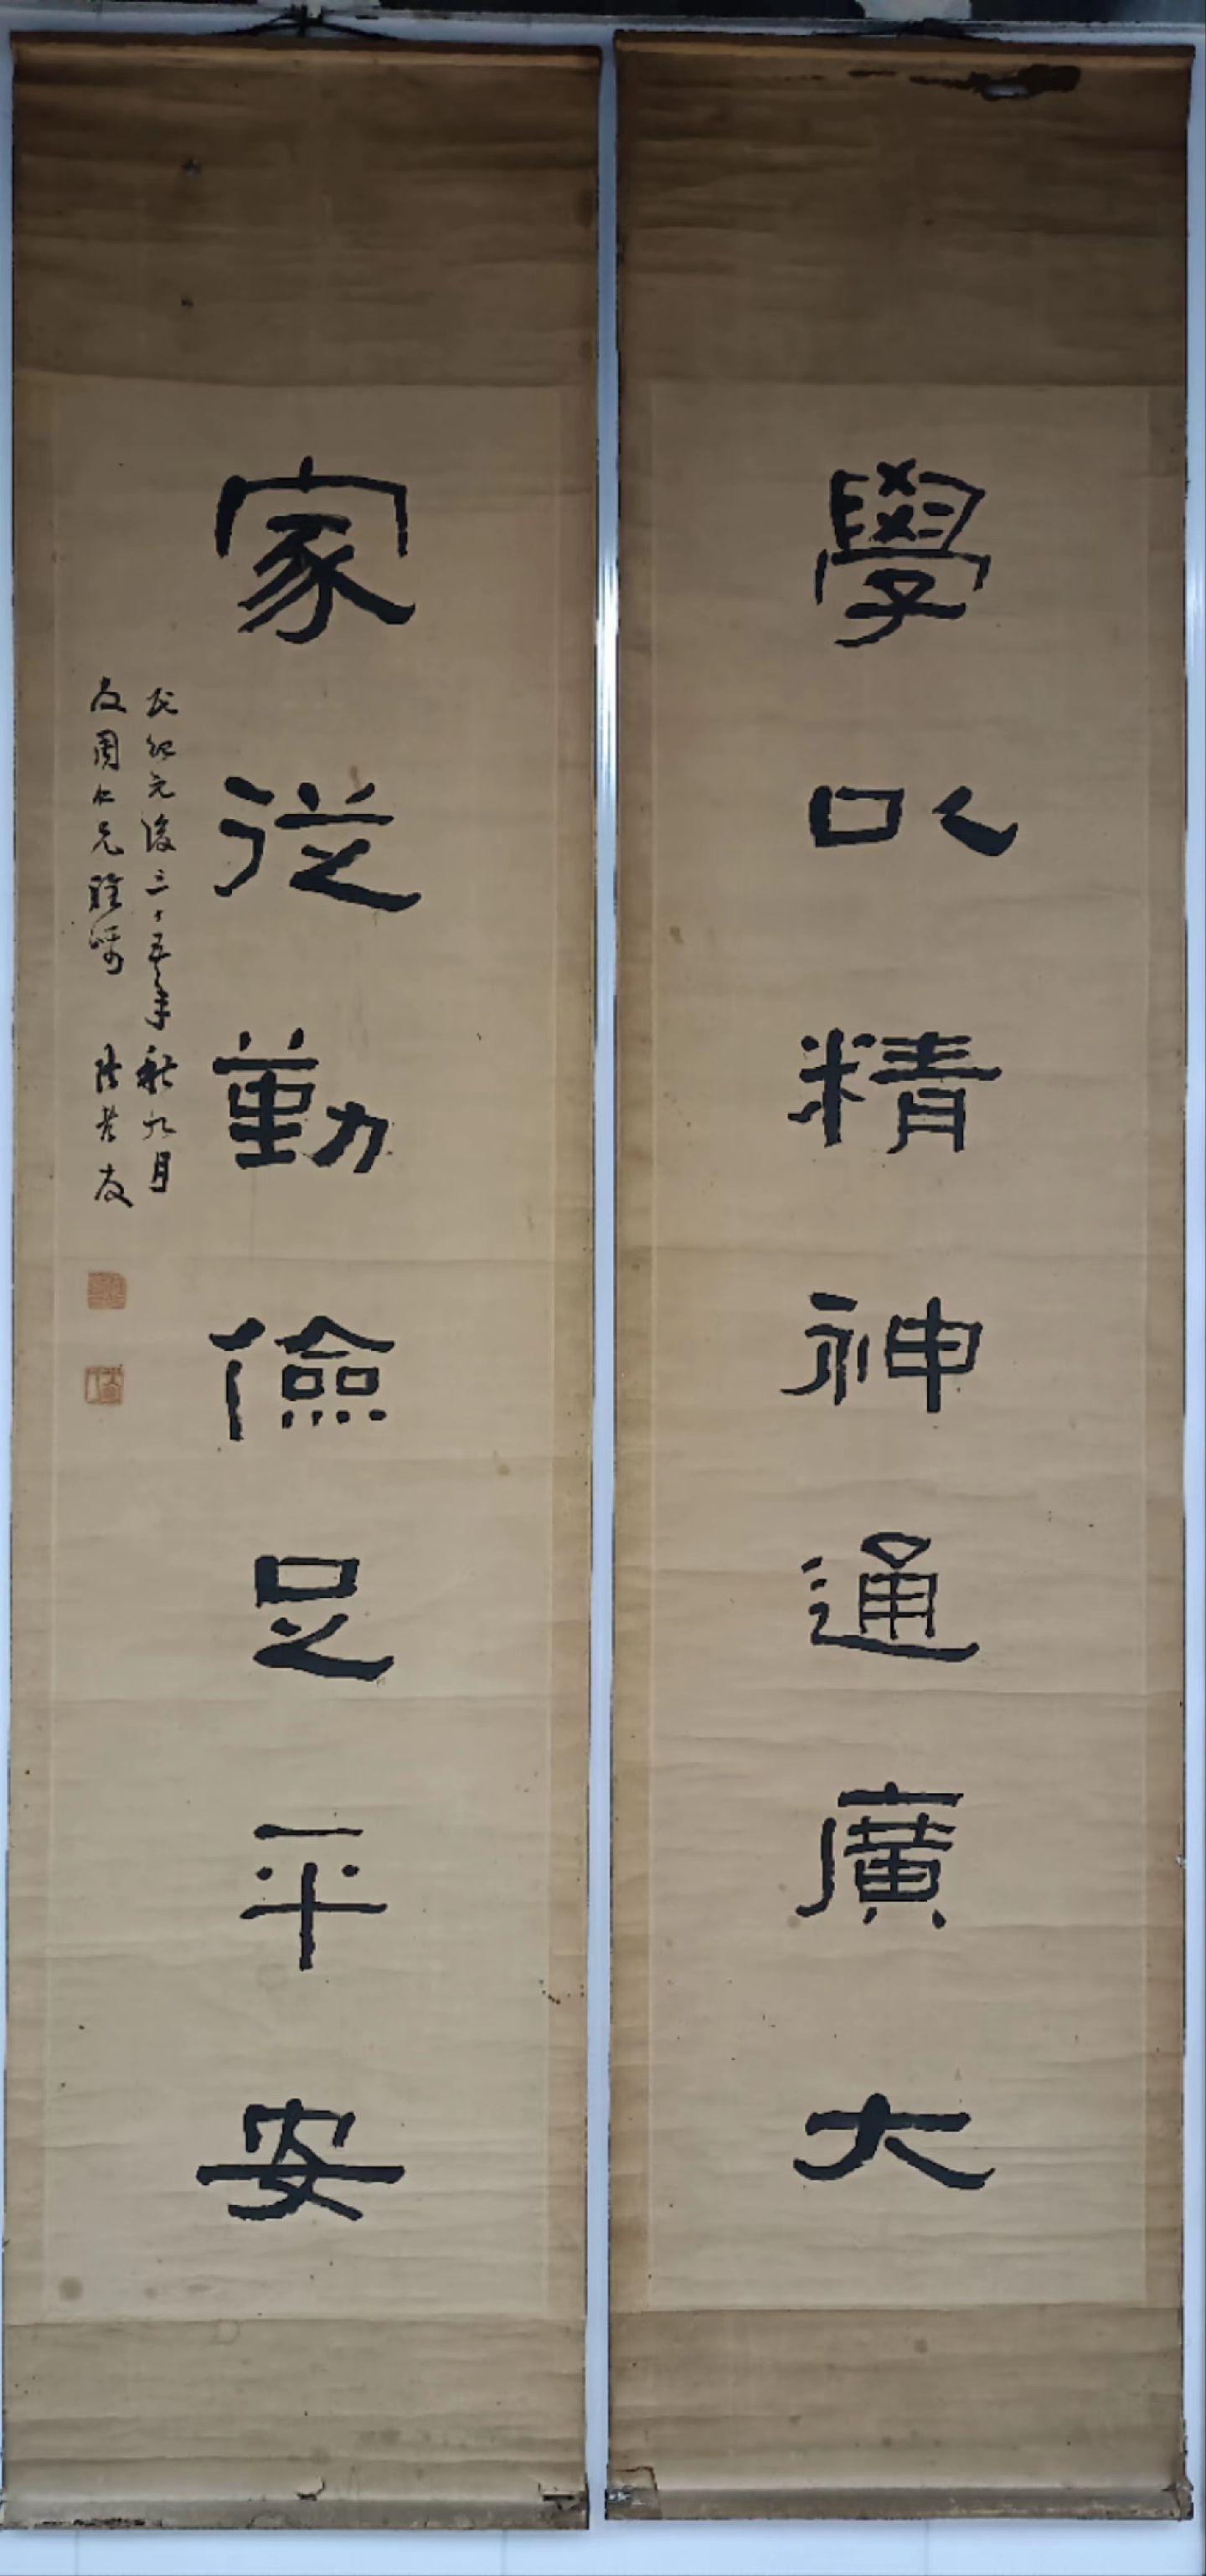 學以精神通廣大
家從勤儉足平安
民紀元後三十五年秋九月
友周仁兄雅嘱 陸荣友